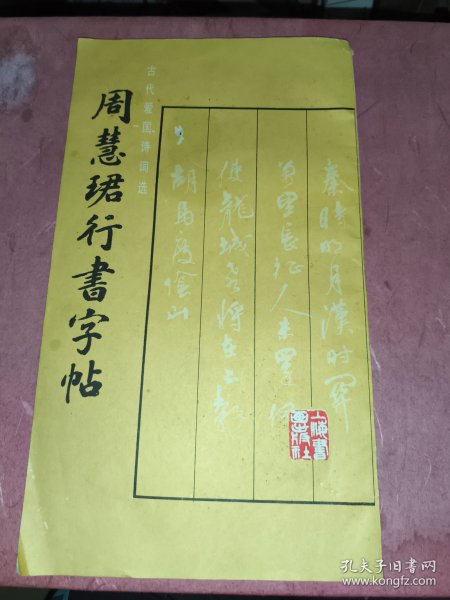 周慧珺行書字帖
古代爱国诗词选
秦時明月漢時関
萬里長征人未還但
使龍城飛將在不教
胡馬度陰山
上海書畫出版社
孔夫子旧书网
www.kongfz.com